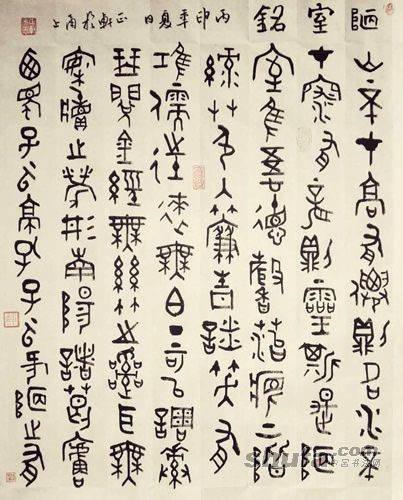 陋室銘
山不在高有僊則名水不
在深有龍則靈斯是陋
室惟吾德馨苔痕上階
綠艸色入簾青談笑有
鴻儒往來無白丁可以調素
琴閱金經無絲竹之亂耳無
案牘之勞形南陽諸葛廬
西蜀子云亭孔子云何陋之有
丙申年夏日